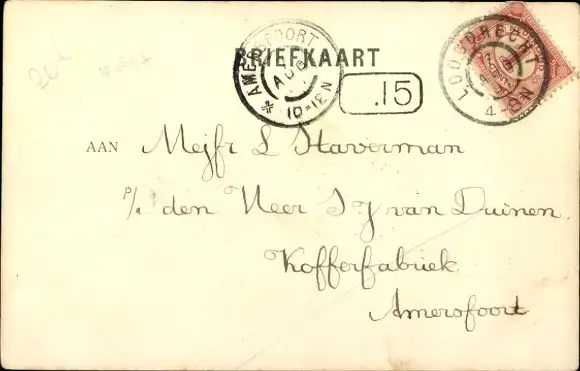 BRIEFKAART
AMERSFOORT
AUG
10-13EN
LOOSDRECHT
4-8N
.15
AAN Mejfr L Staverman
p/a den Heer S J van Duinen
Kofferfabriek
Amersfoort